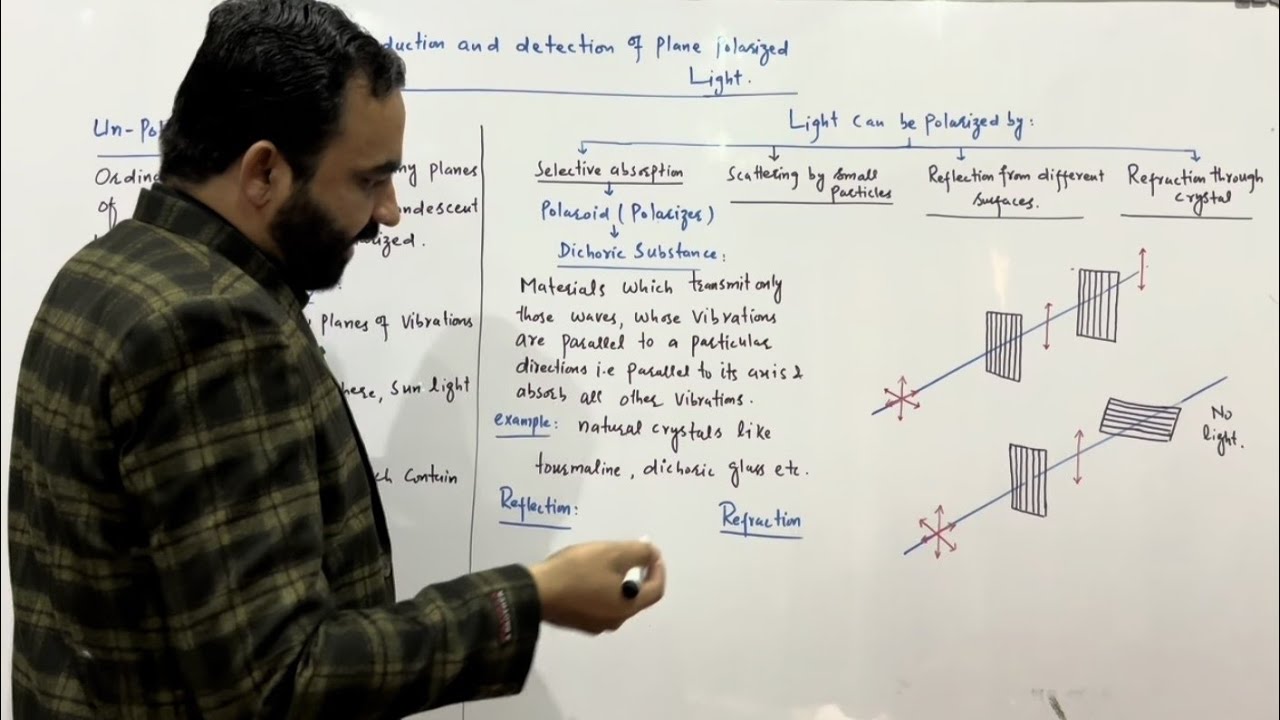 duction and detection of plane polarized
Light.
Un-Pol
Ordina
ny planes
of
ndescent
ized.
planes of Vibrations
here, Sun light
ch Contain
Light can be polarized by:
Selective absorption
Scattering by small
particles
Reflection from different
surfaces.
Refraction through
crystal
Polaroid (Polarizer)
Dichoric Substance:
Materials which transmit only
those waves, whose Vibrations
are parallel to a particular
directions i.e parallel to its axis &
absorb all other Vibrations.
example: natural crystals like
tourmaline, dichoric glass etc.
Reflection:
Refraction
No
light.